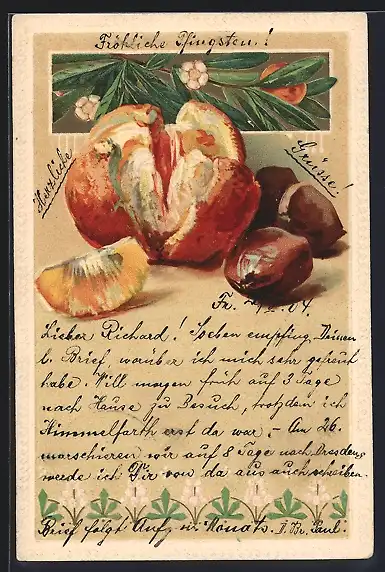 Fröhliche Pfingsten.!
Herzliche
Grüsse!
Fr. 04.
Lieber Richard! Soeben empfing Deinen
l. Brief, worüber ich mich sehr gefreut
habe. Will morgen früh auf 3 Tage
nach Hause zu Besuch, trotzdem ich
Himmelfarth erst da war. - Am 26.
marschieren wir auf 8 Tage nach Dresden,
werde ich Dir von da aus auch schreiben.
Brief folgt Anf. Monats. Br. Paul.